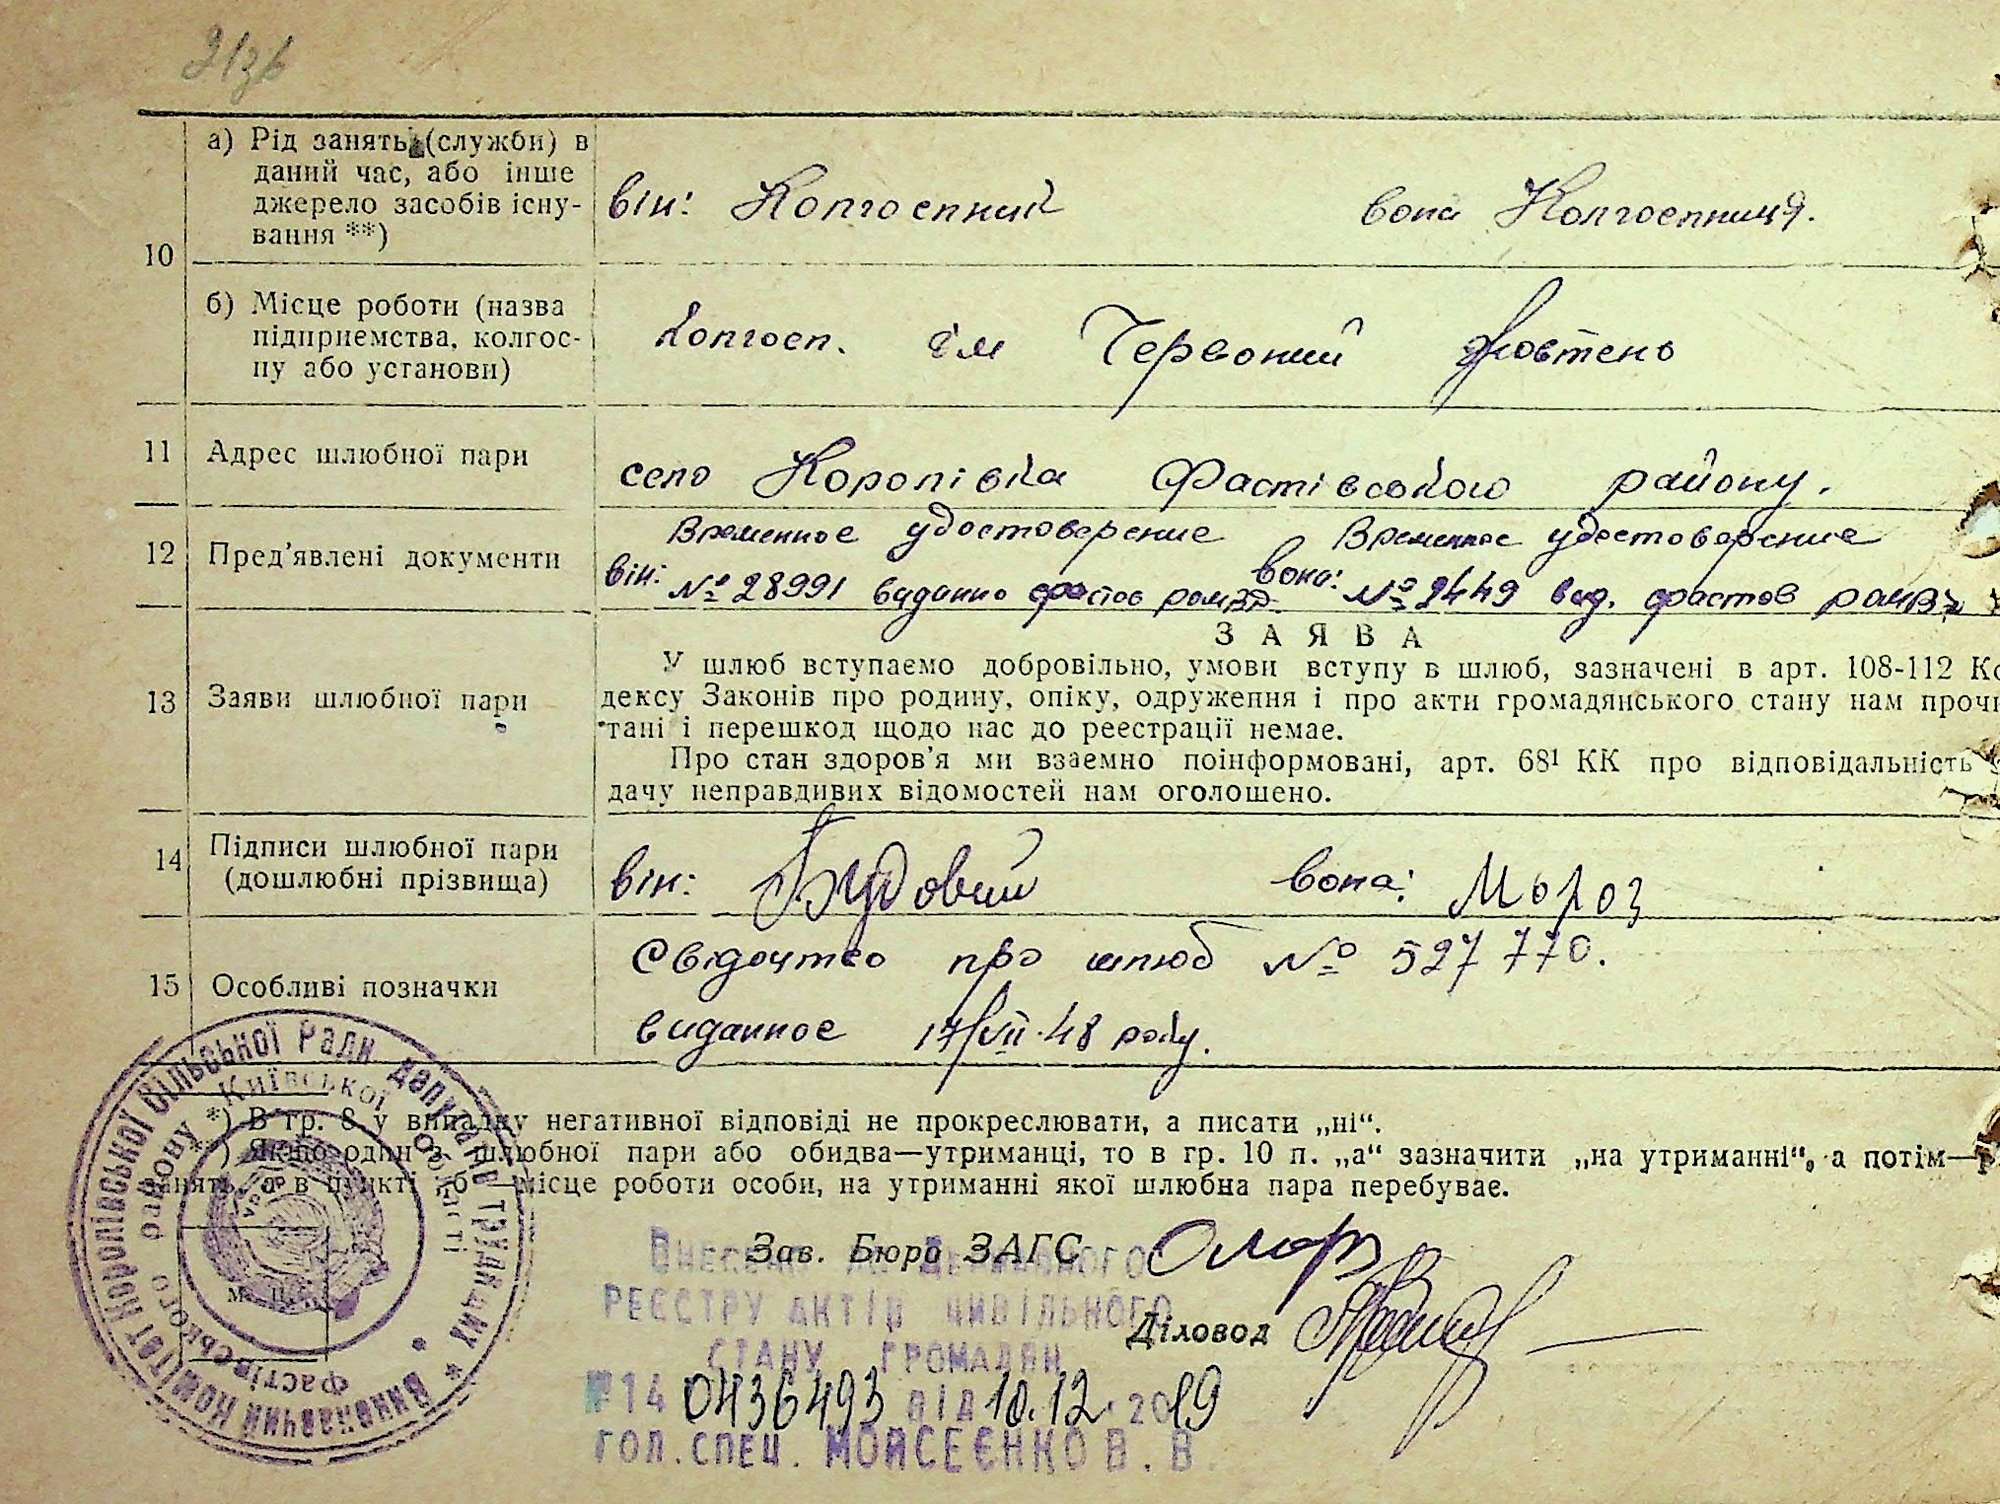 а) Рід занять (служби) в
даний час, або інше
джерело засобів існу-
вання **)
10
він: Колгоспний вона Колгоспниця.
б) Місце роботи (назва
підприємства, колгос-
пу або установи)
Колгосп. ім Червоний Жовтень
11 Адрес шлюбної пари
село Королівка Фастівського району.
12 Пред’явлені документи
Временное удостоверение Временное удостоверение
він: № 28991 виданно Фастов вона: № 2449 вид. Фастов
13 Заяви шлюбної пари
ЗАЯВА
У шлюб вступаємо добровільно, умови вступу в шлюб, зазначені в арт. 108-112 Ко
дексу Законів про родину, опіку, одруження і про акти громадянського стану нам прочи
тані і перешкод щодо нас до реєстрації немає.
Про стан здоров’я ми взаємно поінформовані, арт. 68¹ КК про відповідальність
дачу неправдивих відомостей нам оголошено.
14 Підписи шлюбної пари
(дошлюбні прізвища)
він: Будовий вона: Мороз
15 Особливі позначки
Свідоцтво про шлюб № 527770.
виданное 17/VII·48 року.
*) В гр. 8 у випадку негативної відповіді не прокреслювати, а писати „ні“.
**) Якщо один з шлюбної пари або обидва—утриманці, то в гр. 10 п. „а“ зазначити „на утриманні“, а потім—р
занять, а в пункті „б“ місце роботи особи, на утриманні якої шлюбна пара перебуває.
Зав. Бюро ЗАГС
Діловод
М. П.
Виконавчий Комітет Королівської Сільської Ради депутатів трудящих *
Фастівського району * Київської області
УРСР
Внесено до Державного
реєстру актів цивільного
стану громадян
№ 14 0436493 від 10.12.2019
Гол. спец. Мойсеєнко В. В.